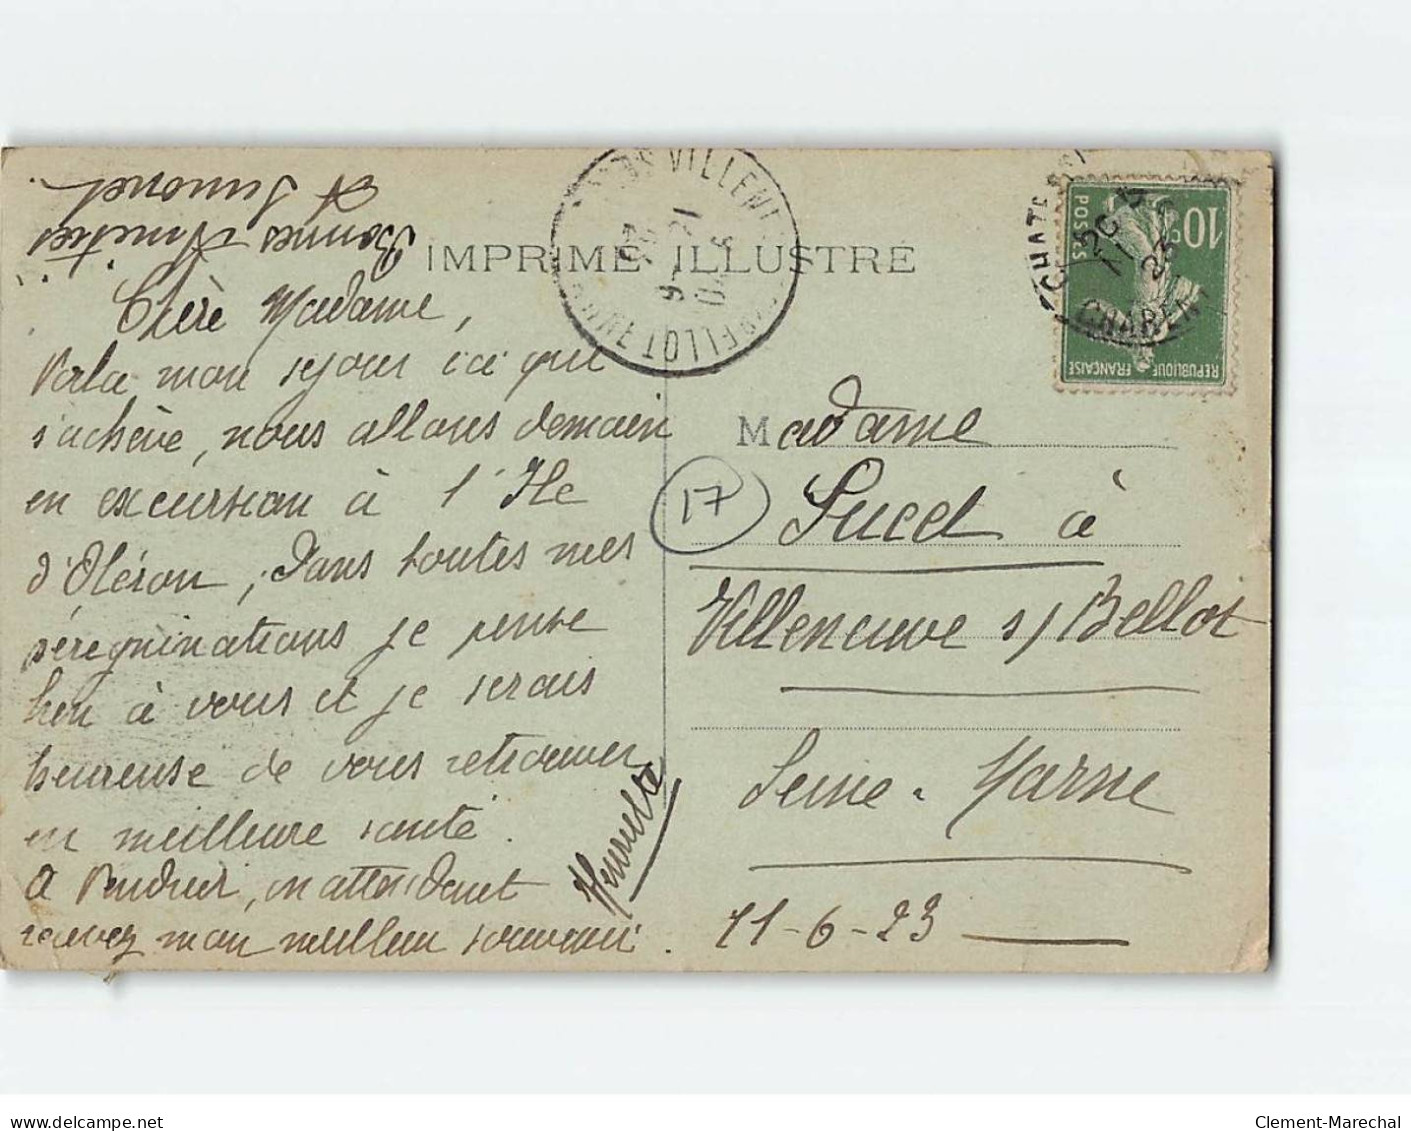 Bonnes Amitiés
A Simonet
IMPRIMÉ ILLUSTRÉ
VILLENEUVE
BELLOT
CHARENTE
10c
POSTES
RÉPUBLIQUE FRANÇAISE
Chère Madame,
Voila mon séjour ici qui
s'achève, nous allons demain
en excursion à l'Ile
d'Oléron, dans toutes mes
pérégrinations je pense
bien à vous et je serais
heureuse de vous retrouver
en meilleure santé.
en attendant
recevez mon meilleur souvenir.
Madame
Sucet à
17
Villeneuve s/ Bellot
Seine-Marne
11-6-23
Clement-Marechal